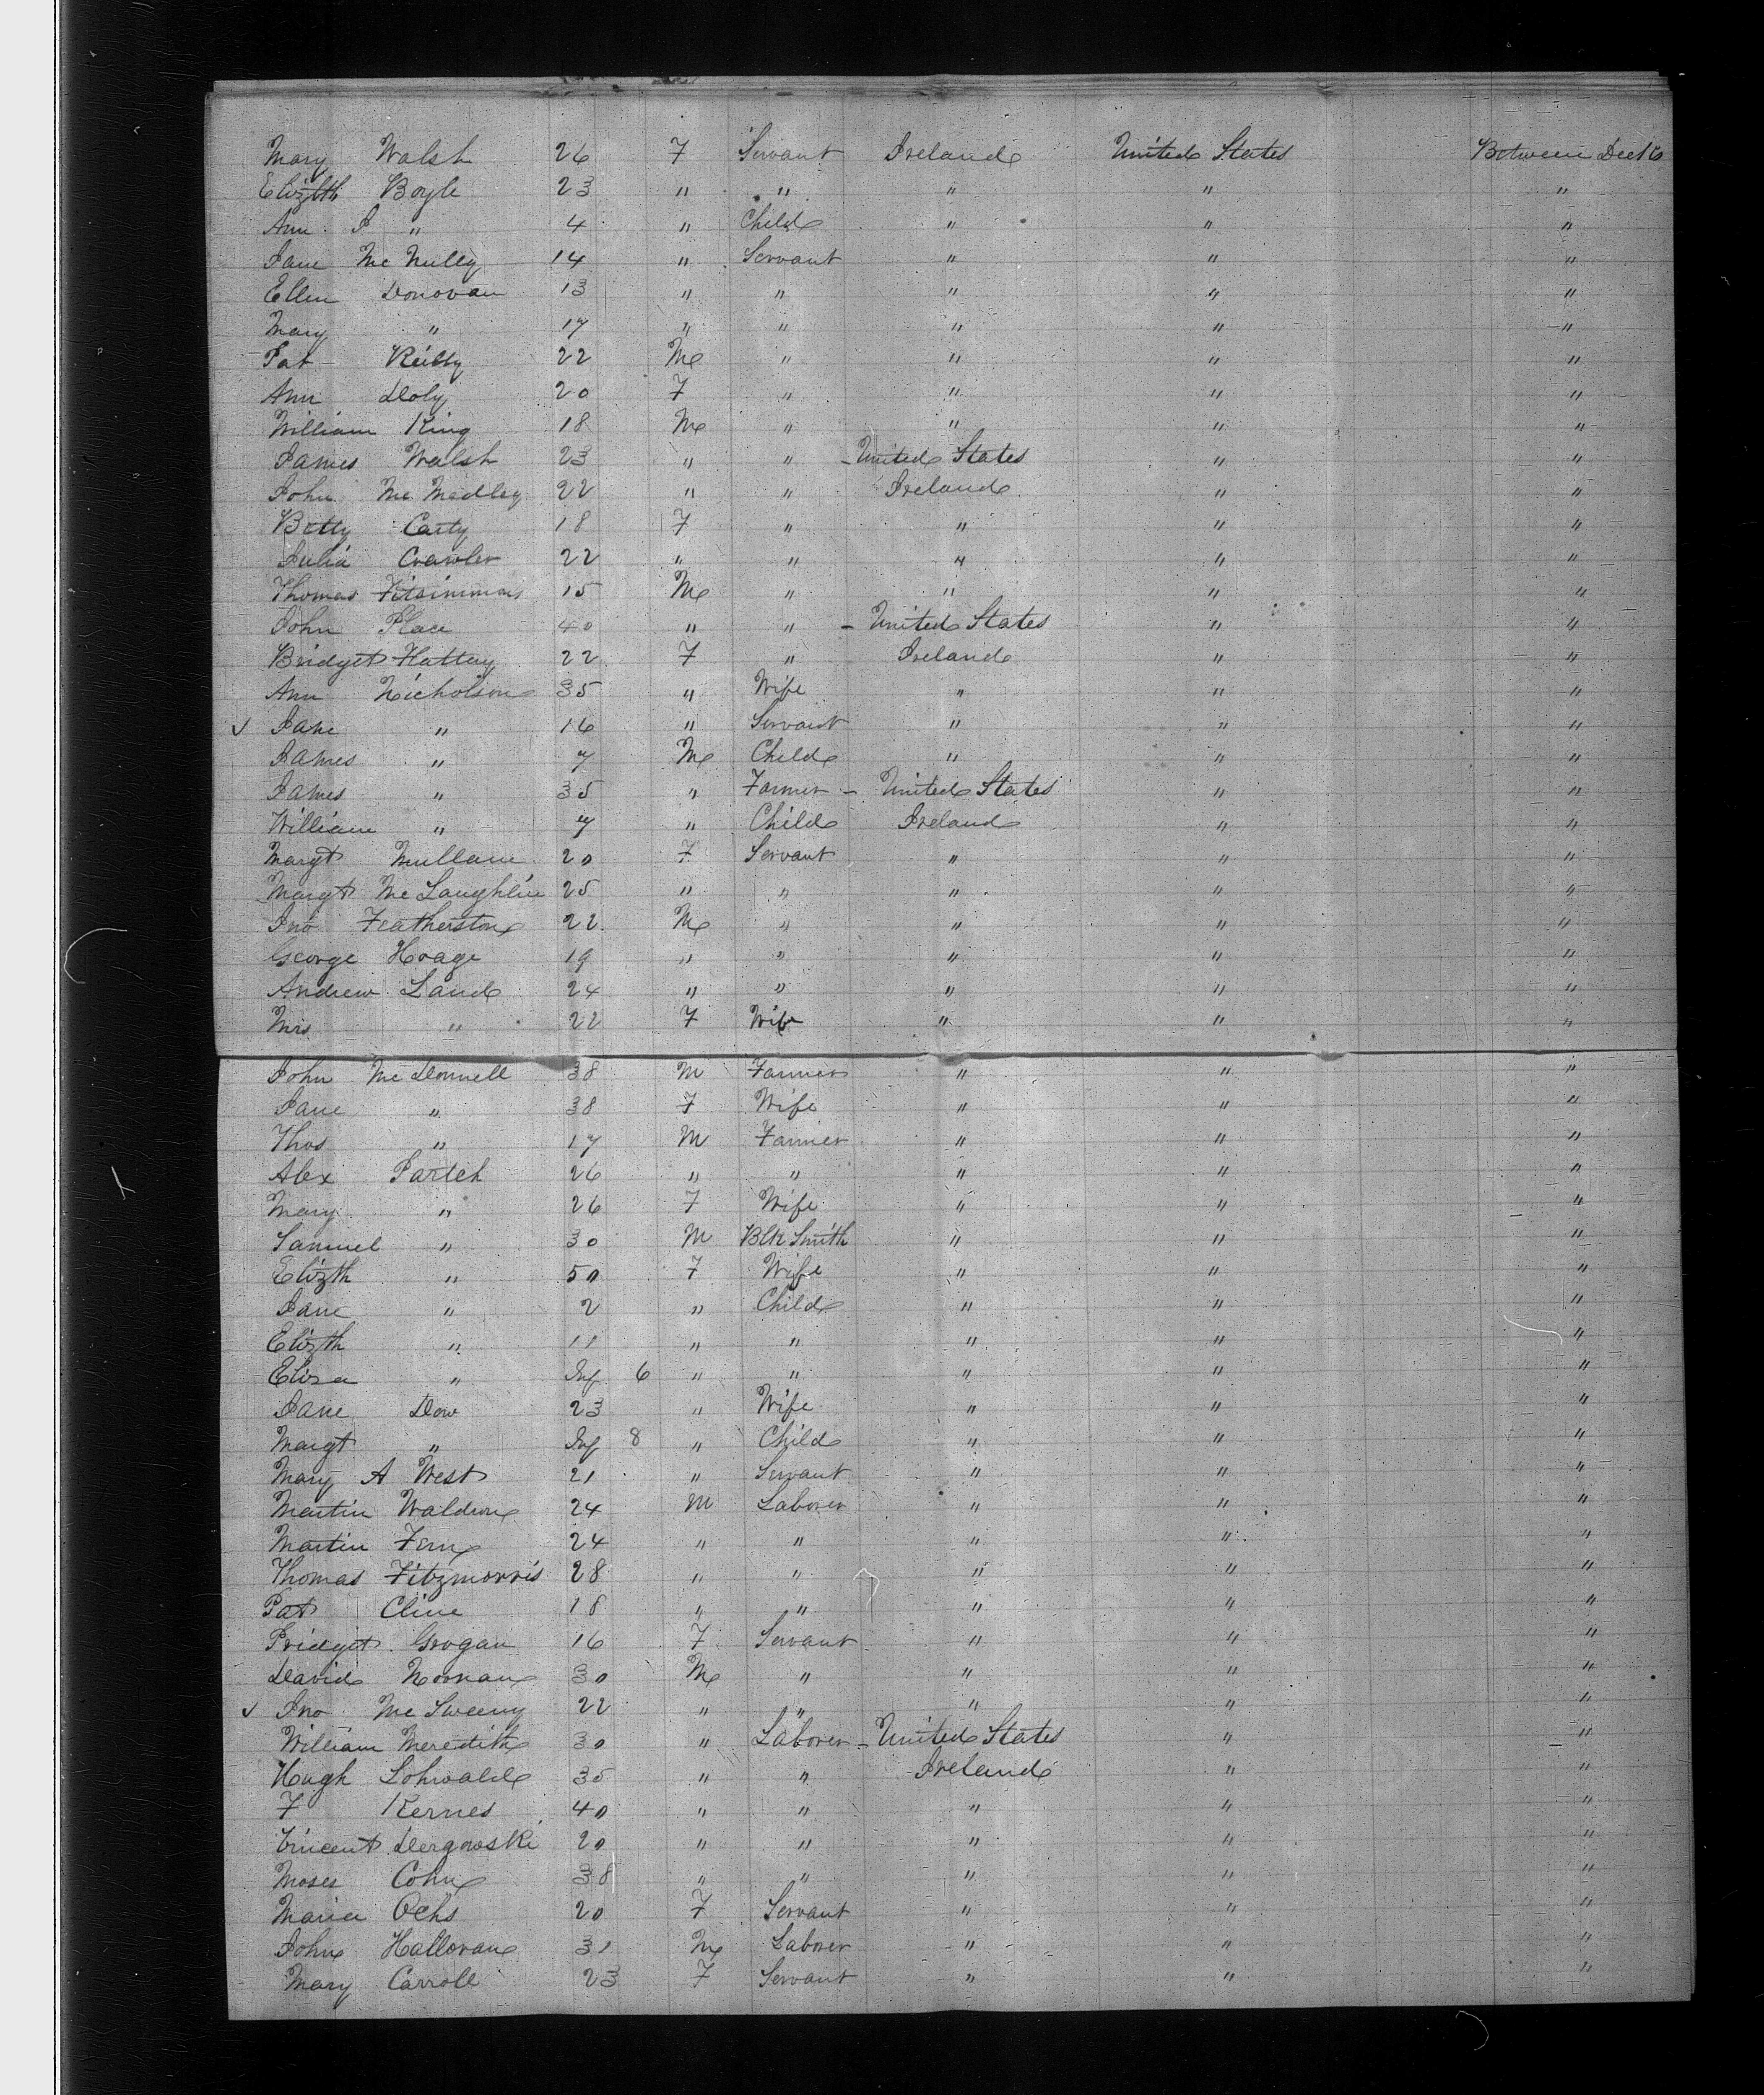 Mary Walsh 26 F Servant Ireland United States Between Decks
Elizbth Boyle 23 " " " " "
Ann J " 4 " Child " " "
Jane Mc Nully 14 " Servant " " "
Ellen Donovan 13 " " " " "
Mary " 17 " " " " "
Pat Reilly 22 M " " " "
Ann Doly 20 F " " " "
William King 18 M " " " "
James Walsh 23 " " United States " "
John Mc Medley 22 " " Ireland " "
Betty Carty 18 F " " " "
Julia Crawler 22 " " " " "
Thomas Fitsimmons 15 M " " " "
John Place 40 " " United States " "
Bridget Hattay 22 F " Ireland " "
Ann Nicholson 35 " Wife " " "
✓ Jane " 16 " Servant " " "
James " 7 M Child " " "
James " 35 " Farmer United States " "
William " 7 " Child Ireland " "
Margt Mullane 20 F Servant " " "
Margt Mc Laughlin 25 " " " " "
Jno Featherstone 22 M " " " "
George Hoage 19 " " " " "
Andrew Land 24 " " " " "
Mrs " 22 F Wife " " "
John Mc Donnell 38 M Farmer " " "
Jane " 38 F Wife " " "
Thos " 17 M Farmer " " "
Alex Partch 26 " " " " "
Mary " 26 F Wife " " "
Samuel " 30 M Blk Smith " " "
Elizth " 50 F Wife " " "
Jane " 2 " Child " " "
Elizth " 11 " " " " "
Eliza " Inf 6 " " " " "
Jane Dow 23 " Wife " " "
Margt " Inf 8 " Child " " "
Mary A West 21 " Servant " " "
Martin Waldron 24 M Laborer " " "
Martin Fenn 24 " " " " "
Thomas Fitzmorris 28 " " " " "
Pat Cline 18 " " " " "
Bridget Grogan 16 F Servant " " "
David Noonan 30 M " " " "
✓ Jno Mc Sweeny 22 " " " " "
William Meredith 30 " Laborer United States " "
Hugh Lohwald 35 " " Ireland " "
F Kernes 40 " " " " "
Vincent Dergowski 20 " " " " "
Moses Cohn 38 " " " " "
Maria Ochs 20 F Servant " " "
John Halloran 31 M Laborer " " "
Mary Carroll 23 F Servant " " "